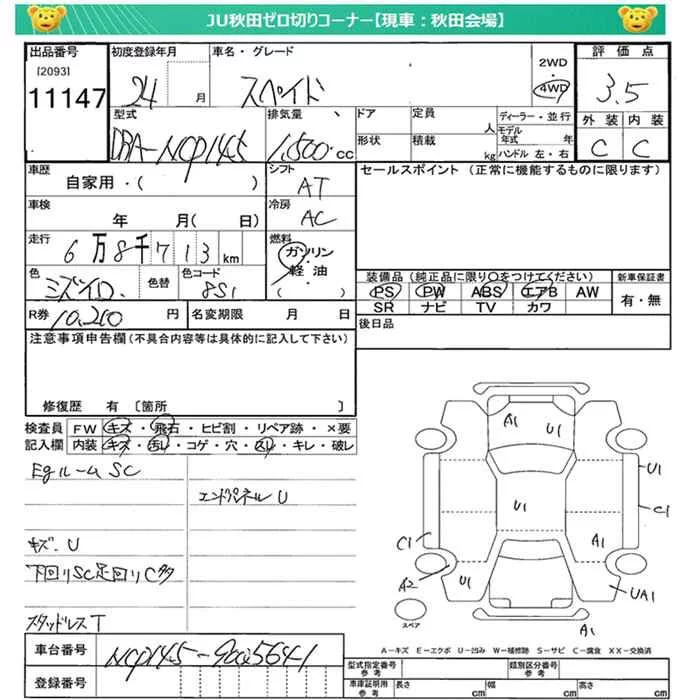 JU秋田ゼロ切りコーナー【現車：秋田会場】
出品番号 初度登録年月 車名・グレード 2WD 4WD 評価点
[2093]
11147 24 月 スペイド 3.5
型式 排気量 ドア 定員 人 ディーラー・並行 外装 内装
DBA-NCP145 1,500 cc 形状 積載 kg モデル年式 年 ハンドル 左・右 C C
車歴 自家用・( ) シフト AT セールスポイント (正常に機能するものに限ります)
車検 年 月( 日) 冷房 AC
走行 6万8千713km 燃料 ガソリン・軽油 ( )
装備品(純正品に限り○をつけてください) 新車保証書
色 ミズイロ 色替 色コード 8S1 PS PW ABS エアB AW 有・無
SR ナビ TV カワ
R券 10,210 円 名変期限 月 日 後日品
注意事項申告欄(不具合内容等は具体的に記入して下さい)
修復歴 有 [箇所 ]
検査員 FW キズ・飛石・ヒビ割・リペア跡・×要
記入欄 内装 キズ・汚レ・コゲ・穴・スレ・キレ・破レ
Egルーム SC
エンドパネル U
キズ・U
下回りSC足回りC多
スタッドレスT
A1 U1
U1
U1 C1
C1 A1
A2 U1 UA1
A1
スペア
A－キズ E－エクボ U－凹み W－補修跡 S－サビ C－腐食 XX－交換済
車台番号 NCP145-9005641
登録番号
型式指定番号 参考 類別区分番号 参考
車庫証明用 参考 長さ cm 幅 cm 高さ cm